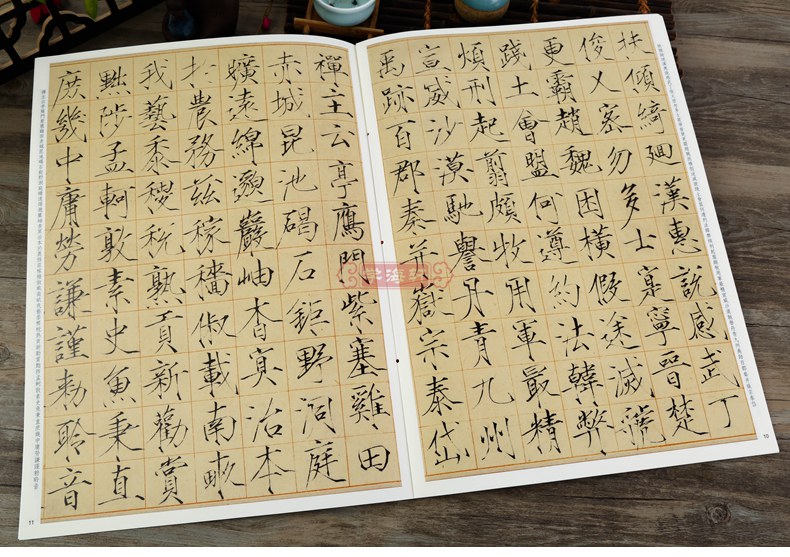 扶傾綺迴漢惠說感武丁
俊乂密勿多士寔寧晉楚
更霸趙魏困橫假途滅虢
踐土會盟何遵約法韓弊
煩刑起翦頗牧用軍最精
宣威沙漠馳譽丹青九州
禹跡百郡秦并嶽宗泰岱
10
禪主云亭鴈門紫塞雞田
赤城昆池碣石鉅野洞庭
曠遠綿邈巖岫杳冥治本
於農務茲稼穡俶載南畝
我藝黍稷稅熟貢新勸賞
黜陟孟軻敦素史魚秉直
庶幾中庸勞謙謹敕聆音
11